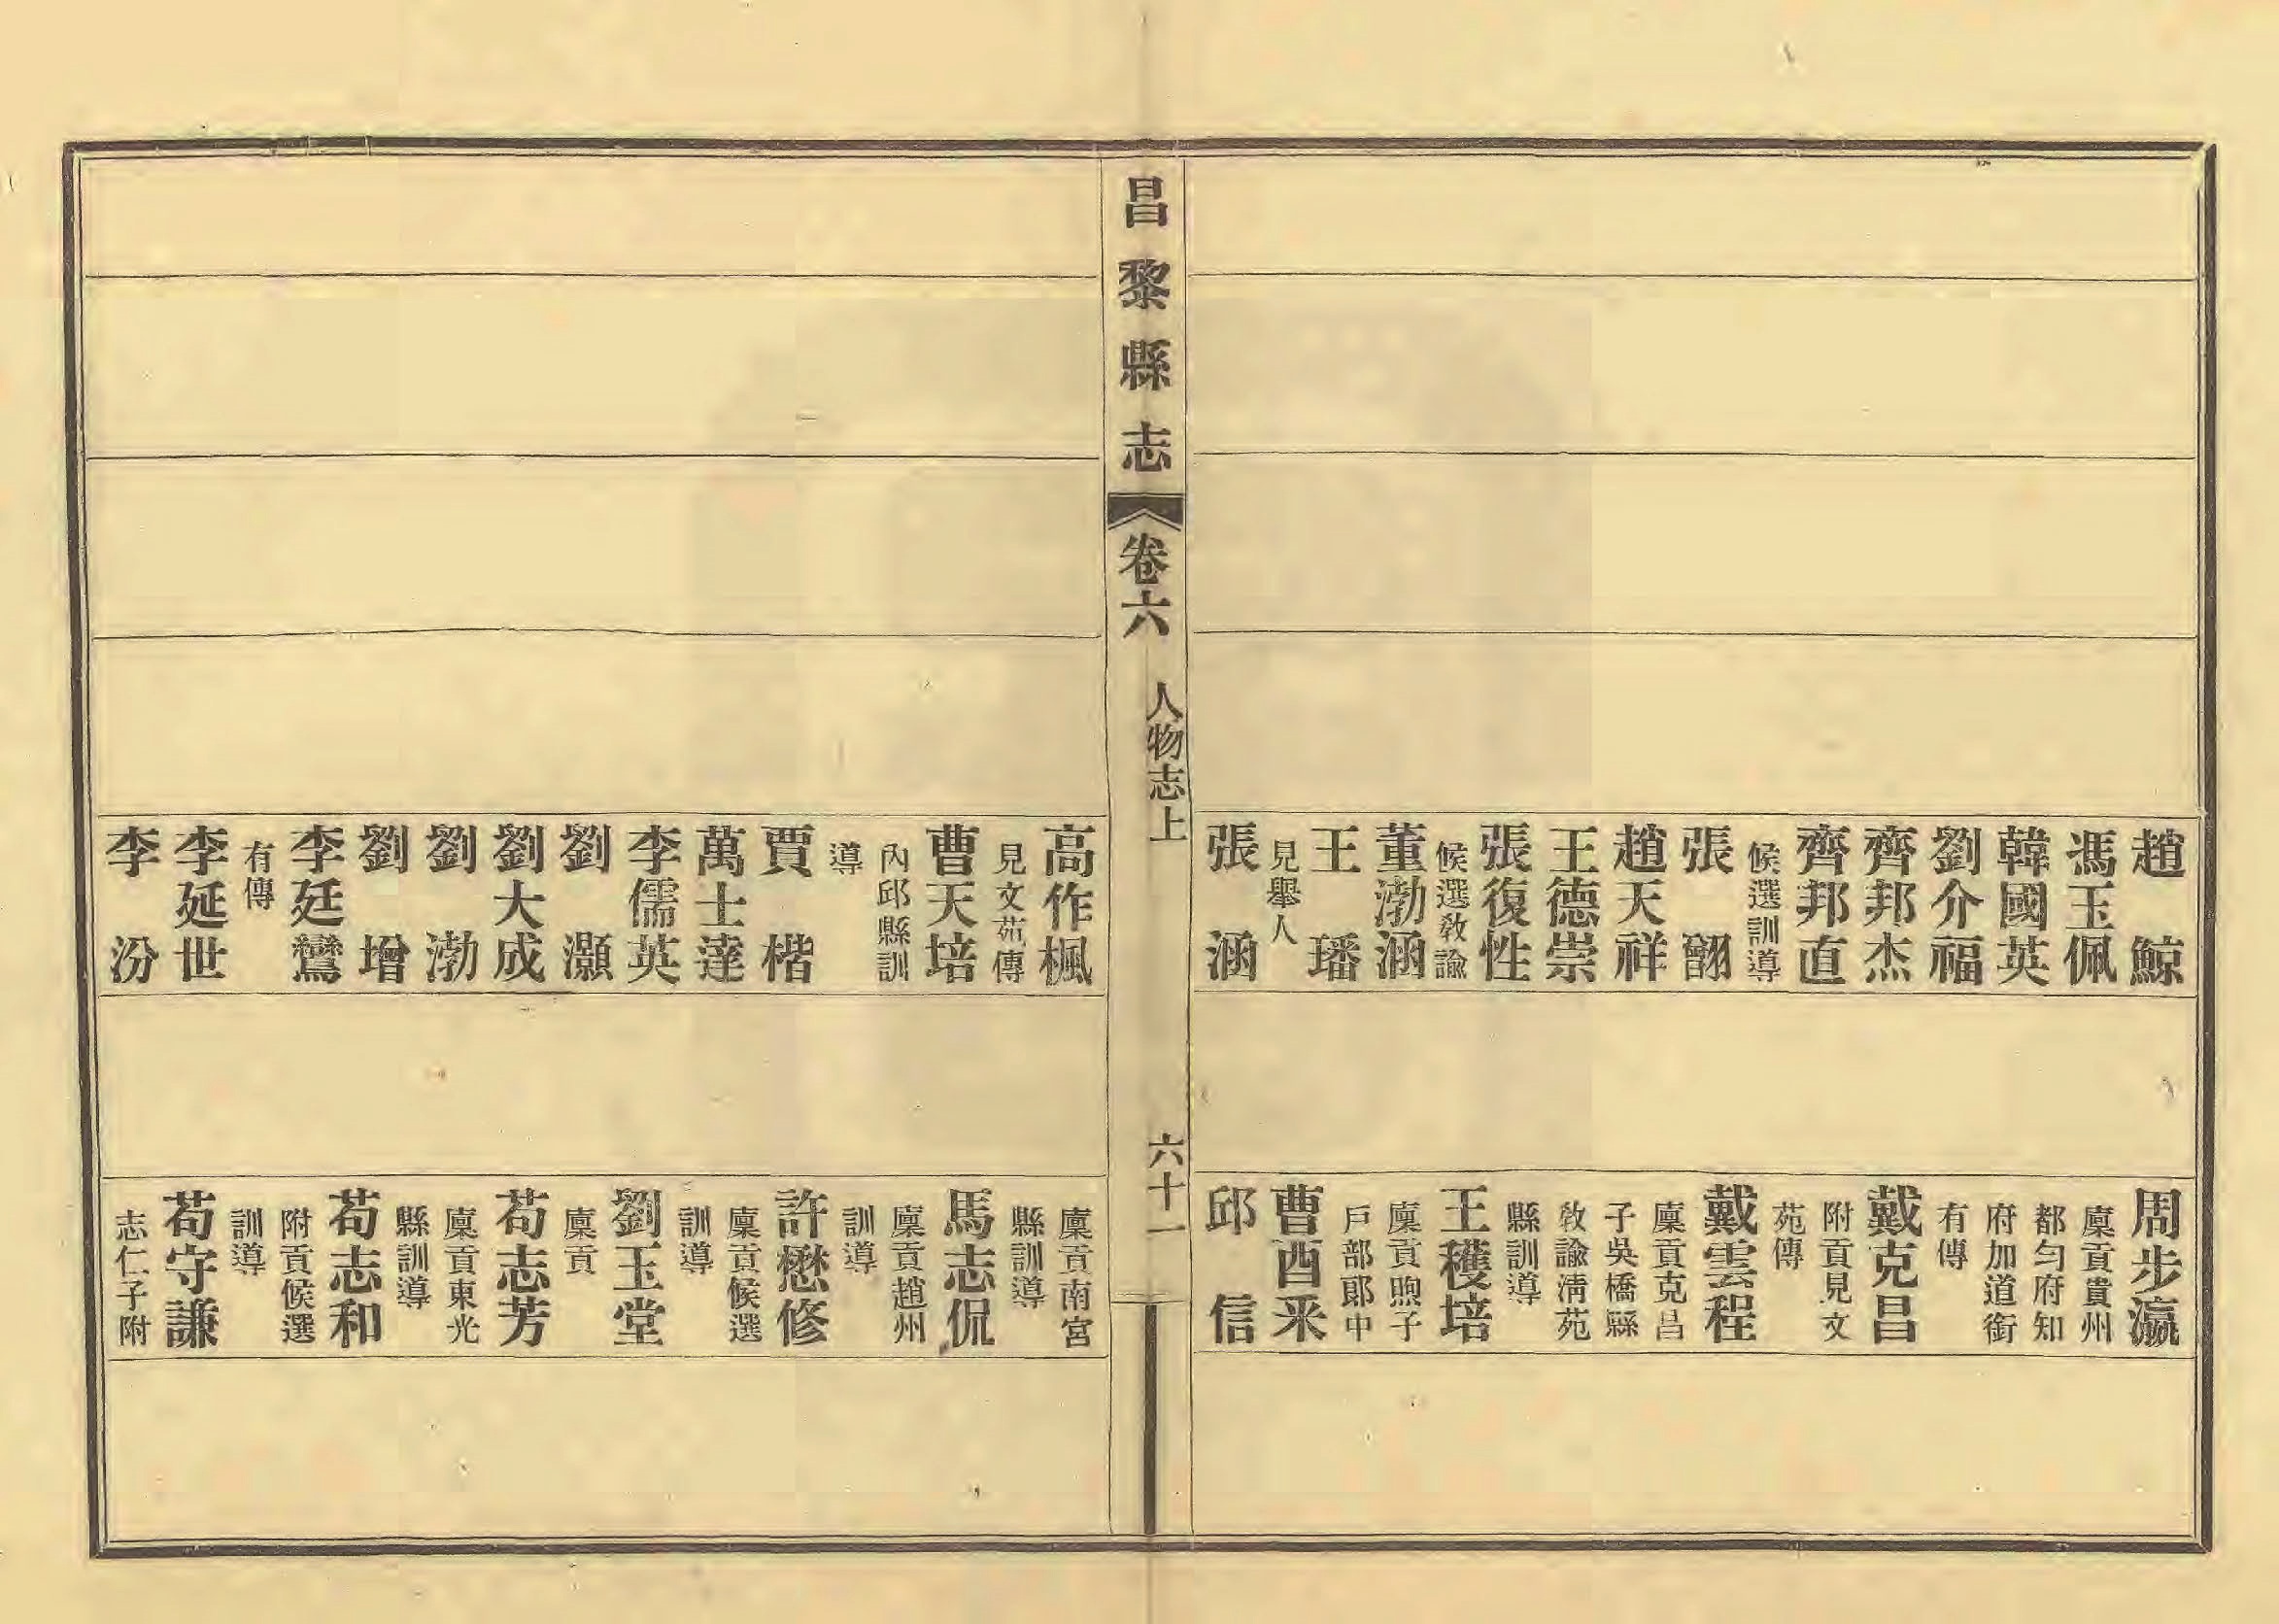 趙鯨
馮玉佩
韓國英
劉介福
齊邦杰
齊邦直
候選訓導
張翮
趙天祥
王德崇
張復性
候選教諭
董渤涵
王璠
見舉人
張涵
周步瀛
廩貢貴州
都勻府知
府加道銜
有傳
戴克昌
附貢見文
苑傳
戴雲程
廩貢克昌
子吳橋縣
教諭清苑
縣訓導
王穫培
廩貢煦子
戶部郎中
曹酉采
邱信
昌黎縣志
卷六
人物志上
六十一
高作楓
見文苑傳
曹天培
內邱縣訓
導
賈楷
萬士達
李儒英
劉灝
劉大成
劉渤
劉增
李廷鸞
有傳
李延世
李汾
廩貢南宮
縣訓導
馬志侃
廩貢趙州
訓導
許懋修
廩貢候選
訓導
劉玉堂
廩貢
苟志芳
廩貢東光
縣訓導
苟志和
附貢候選
訓導
苟守謙
志仁子附